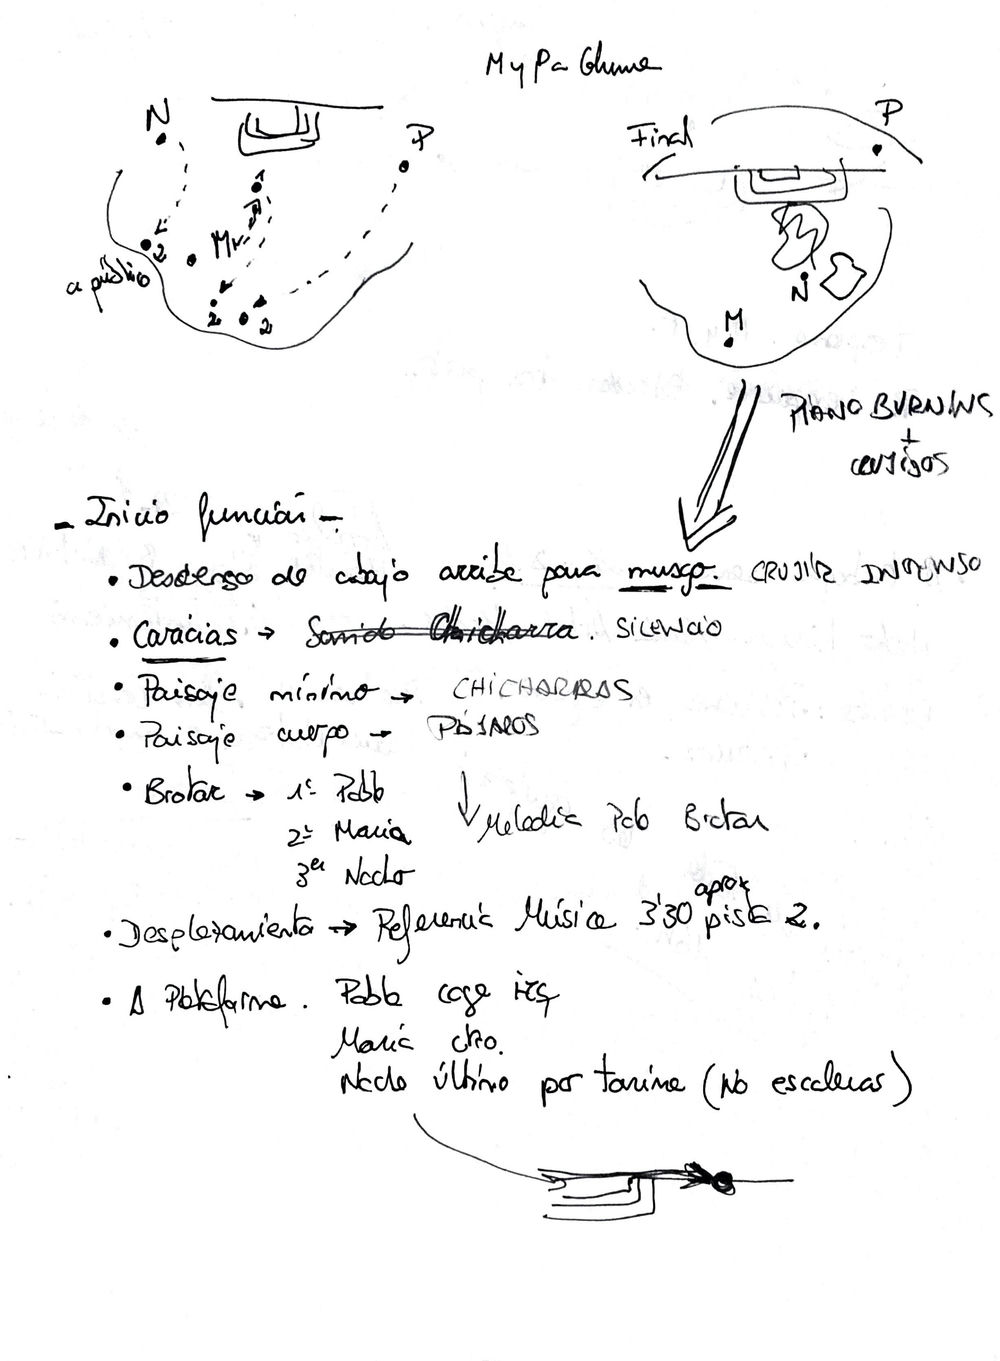 My Pa Chume
N
P
M
2
2
2
a público
Final
P
N
M
PIANO BURNING
+
crujidos
- Inicio función -
• Descenso de abajo arriba para musgo. CRUJIR INTENSO
• Caracias → Sonido Chicharra. SILENCIO
• Paisaje mínimo → CHICHARRAS
• Paisaje cuerpo → PÁJAROS
• Brotar → 1º Pablo
2º María
3er Nacho
Melodía Brotar
• Desplazamiento → Referencia Música 3'30 aprox pista 2.
• A Plataforma. Pablo coge izq
María ctro.
Nacho último por tarima (No escaleras)